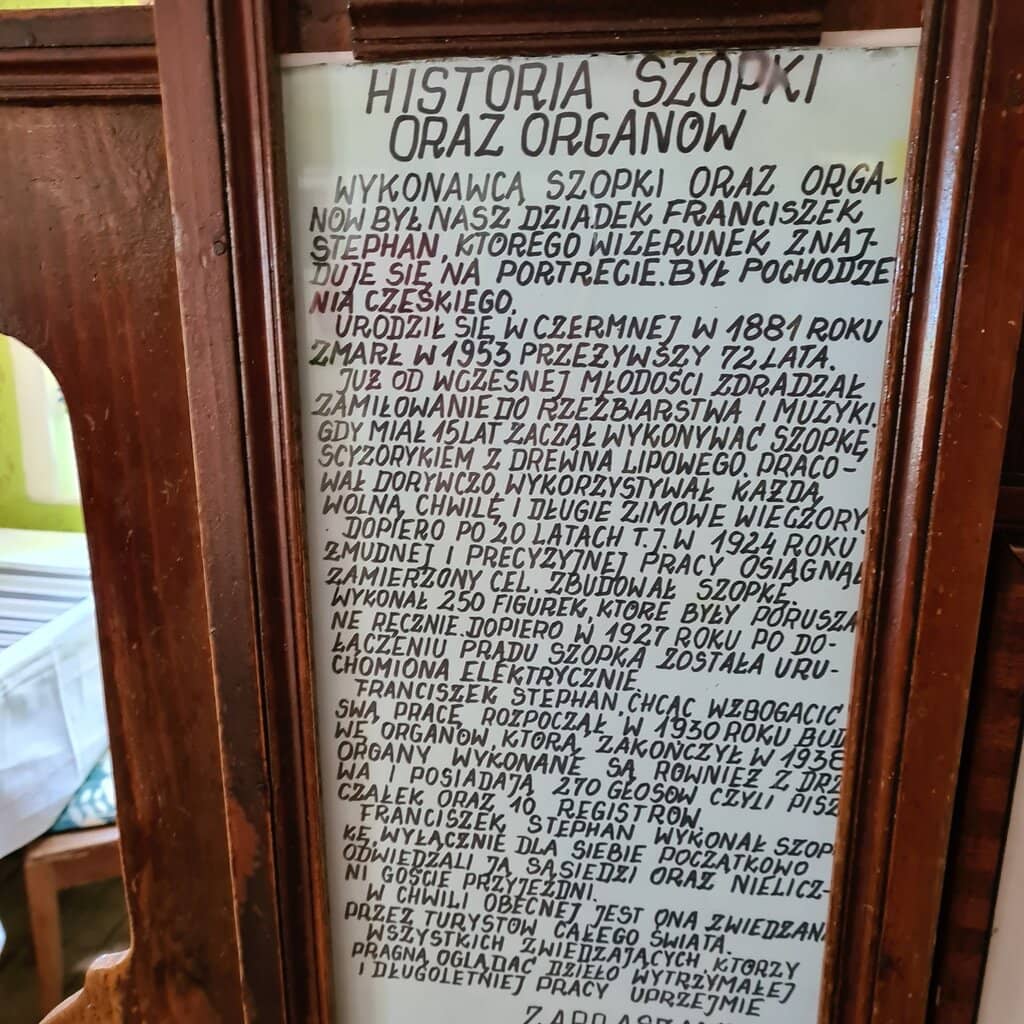 HISTORIA SZOPKI
ORAZ ORGANÓW
WYKONAWCĄ SZOPKI ORAZ ORGA-
NÓW BYŁ NASZ DZIADEK FRANCISZEK
STEPHAN, KTÓREGO WIZERUNEK ZNAJ-
DUJE SIĘ NA PORTRECIE. BYŁ POCHODZE
NIA CZESKIEGO.
URODZIŁ SIĘ W CZERMNEJ W 1881 ROKU
ZMARŁ W 1953 PRZEŻYWSZY 72 LATA.
JUŻ OD WCZESNEJ MŁODOŚCI ZDRADZAŁ
ZAMIŁOWANIE DO RZEŹBIARSTWA I MUZYKI.
GDY MIAŁ 15 LAT ZACZĄŁ WYKONYWAĆ SZOPKĘ
SCYZORYKIEM Z DREWNA LIPOWEGO. PRACO-
WAŁ DORYWCZO, WYKORZYSTYWAŁ KAŻDĄ
WOLNĄ CHWILĘ I DŁUGIE ZIMOWE WIECZORY.
DOPIERO PO 20 LATACH T.J. W 1924 ROKU
ŻMUDNEJ I PRECYZYJNEJ PRACY OSIĄGNĄŁ
ZAMIERZONY CEL. ZBUDOWAŁ SZOPKĘ.
WYKONAŁ 250 FIGUREK, KTÓRE BYŁY PORUSZA
NE RĘCZNIE. DOPIERO W 1927 ROKU PO DO-
ŁĄCZENIU PRĄDU SZOPKA ZOSTAŁA URU-
CHOMIONA ELEKTRYCZNIE.
FRANCISZEK STEPHAN, CHCĄC WZBOGACIĆ
SWĄ PRACĘ ROZPOCZĄŁ W 1930 ROKU BUD
WĘ ORGANÓW, KTÓRĄ ZAKOŃCZYŁ W 1938
ORGANY WYKONANE SĄ RÓWNIEŻ Z DRZ
WA I POSIADAJĄ 270 GŁOSÓW CZYLI PISZ
CZAŁEK ORAZ 10 REGISTRÓW.
FRANCISZEK STEPHAN WYKONAŁ SZOP
KĘ WYŁĄCZNIE DLA SIEBIE POCZĄTKOWO
ODWIEDZALI JĄ SĄSIEDZI ORAZ NIELICZ-
NI GOŚCIE PRZYJEZDNI.
W CHWILI OBECNEJ JEST ONA ZWIEDZAN
PRZEZ TURYSTÓW CAŁEGO ŚWIATA.
WSZYSTKICH ZWIEDZAJĄCYCH, KTÓRZY
PRAGNĄ OGLĄDAĆ DZIEŁO WYTRZYMAŁEJ
I DŁUGOLETNIEJ PRACY UPRZEJMIE